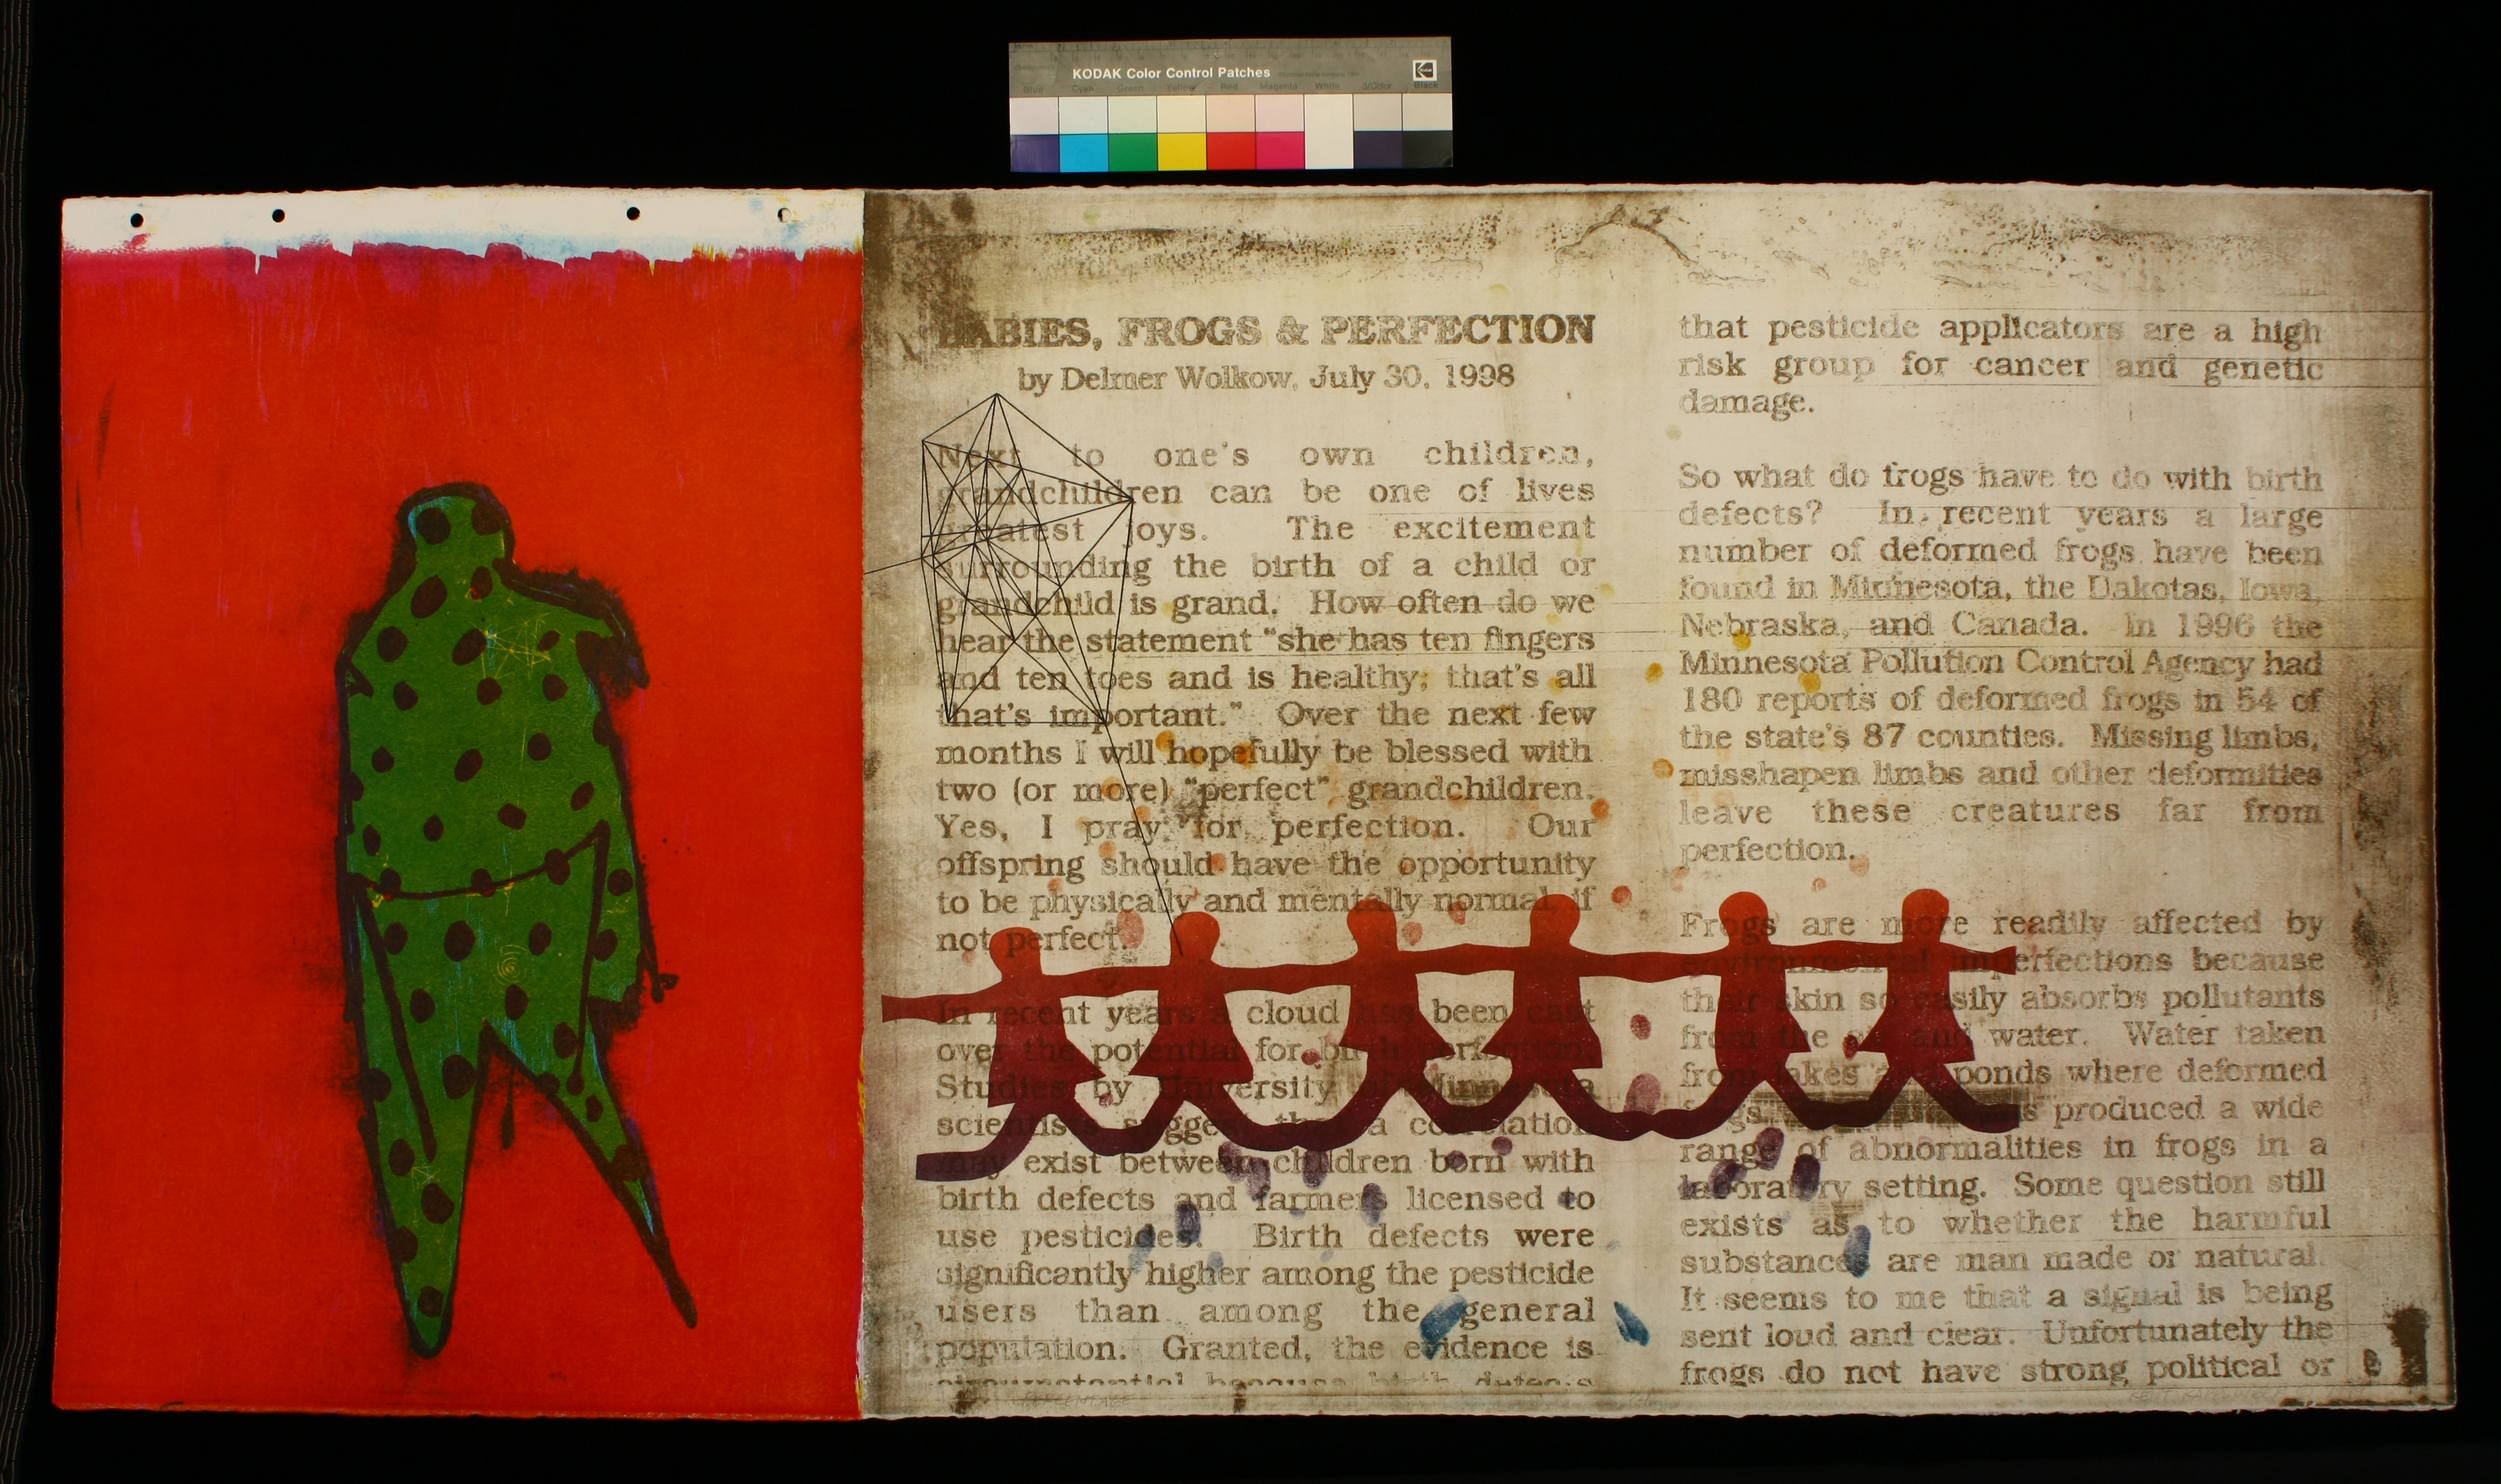 KODAK Color Control Patches
Blue Cyan Green Yellow Red Magenta White 3/Color Black
BABIES, FROGS & PERFECTION
by Delmer Wolkow, July 30, 1998
Next to one's own children,
grandchildren can be one of lives
greatest joys. The excitement
surrounding the birth of a child or
grandchild is grand. How often do we
hear the statement "she has ten fingers
and ten toes and is healthy; that's all
that's important." Over the next few
months I will hopefully be blessed with
two (or more) "perfect" grandchildren.
Yes, I pray for perfection. Our
offspring should have the opportunity
to be physically and mentally normal, if
not perfect.
In recent years a cloud has been cast
over the potential for birth perfection.
Studies by University of Minnesota
scientists suggest that a correlation
may exist between children born with
birth defects and farmers licensed to
use pesticides. Birth defects were
significantly higher among the pesticide
users than among the general
population. Granted, the evidence is
circumstantial because birth defects
that pesticide applicators are a high
risk group for cancer and genetic
damage.
So what do frogs have to do with birth
defects? In recent years a large
number of deformed frogs have been
found in Minnesota, the Dakotas, Iowa,
Nebraska, and Canada. In 1996 the
Minnesota Pollution Control Agency had
180 reports of deformed frogs in 54 of
the state's 87 counties. Missing limbs,
misshapen limbs and other deformities
leave these creatures far from
perfection.
Frogs are more readily affected by
environmental imperfections because
their skin so easily absorbs pollutants
from the air and water. Water taken
from lakes and ponds where deformed
frogs produced a wide
range of abnormalities in frogs in a
laboratory setting. Some question still
exists as to whether the harmful
substances are man made or natural.
It seems to me that a signal is being
sent loud and clear. Unfortunately the
frogs do not have strong political or